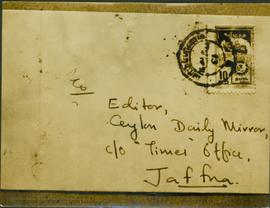 To
Editor,
Ceylon Daily Mirror,
c/o "Times" Office,
Jaffna.
10